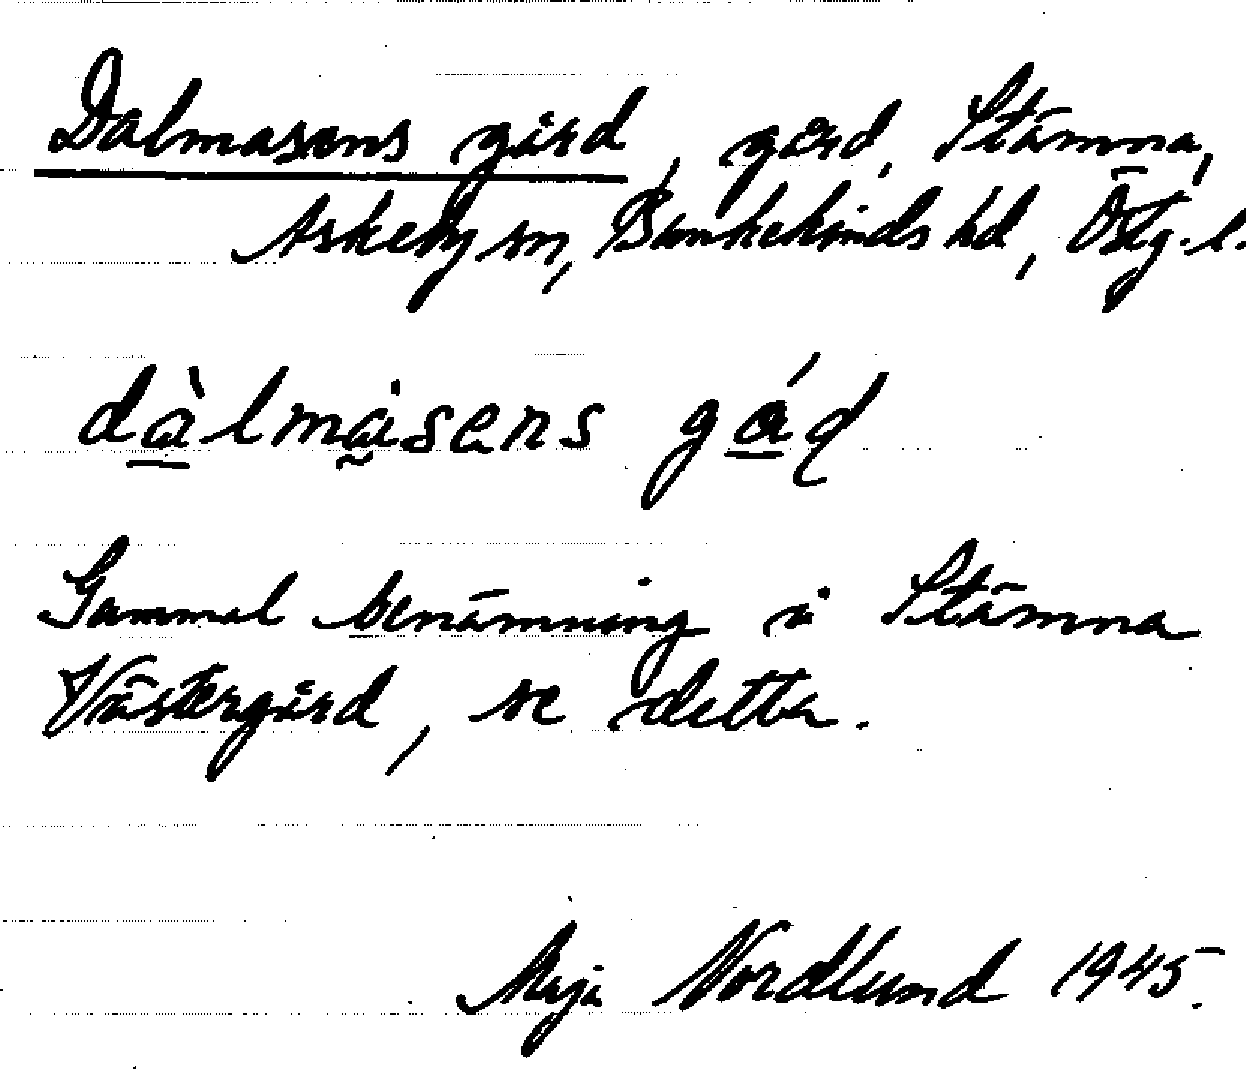 Dalmasens gård, gård, Stämna,
Askeby sn, Bankekinds hd, Östg. l.
dàlmȧsens gáɖ
Gammal benämning å Stämna
Västergård, se detta.
Maja Nordlund 1945.